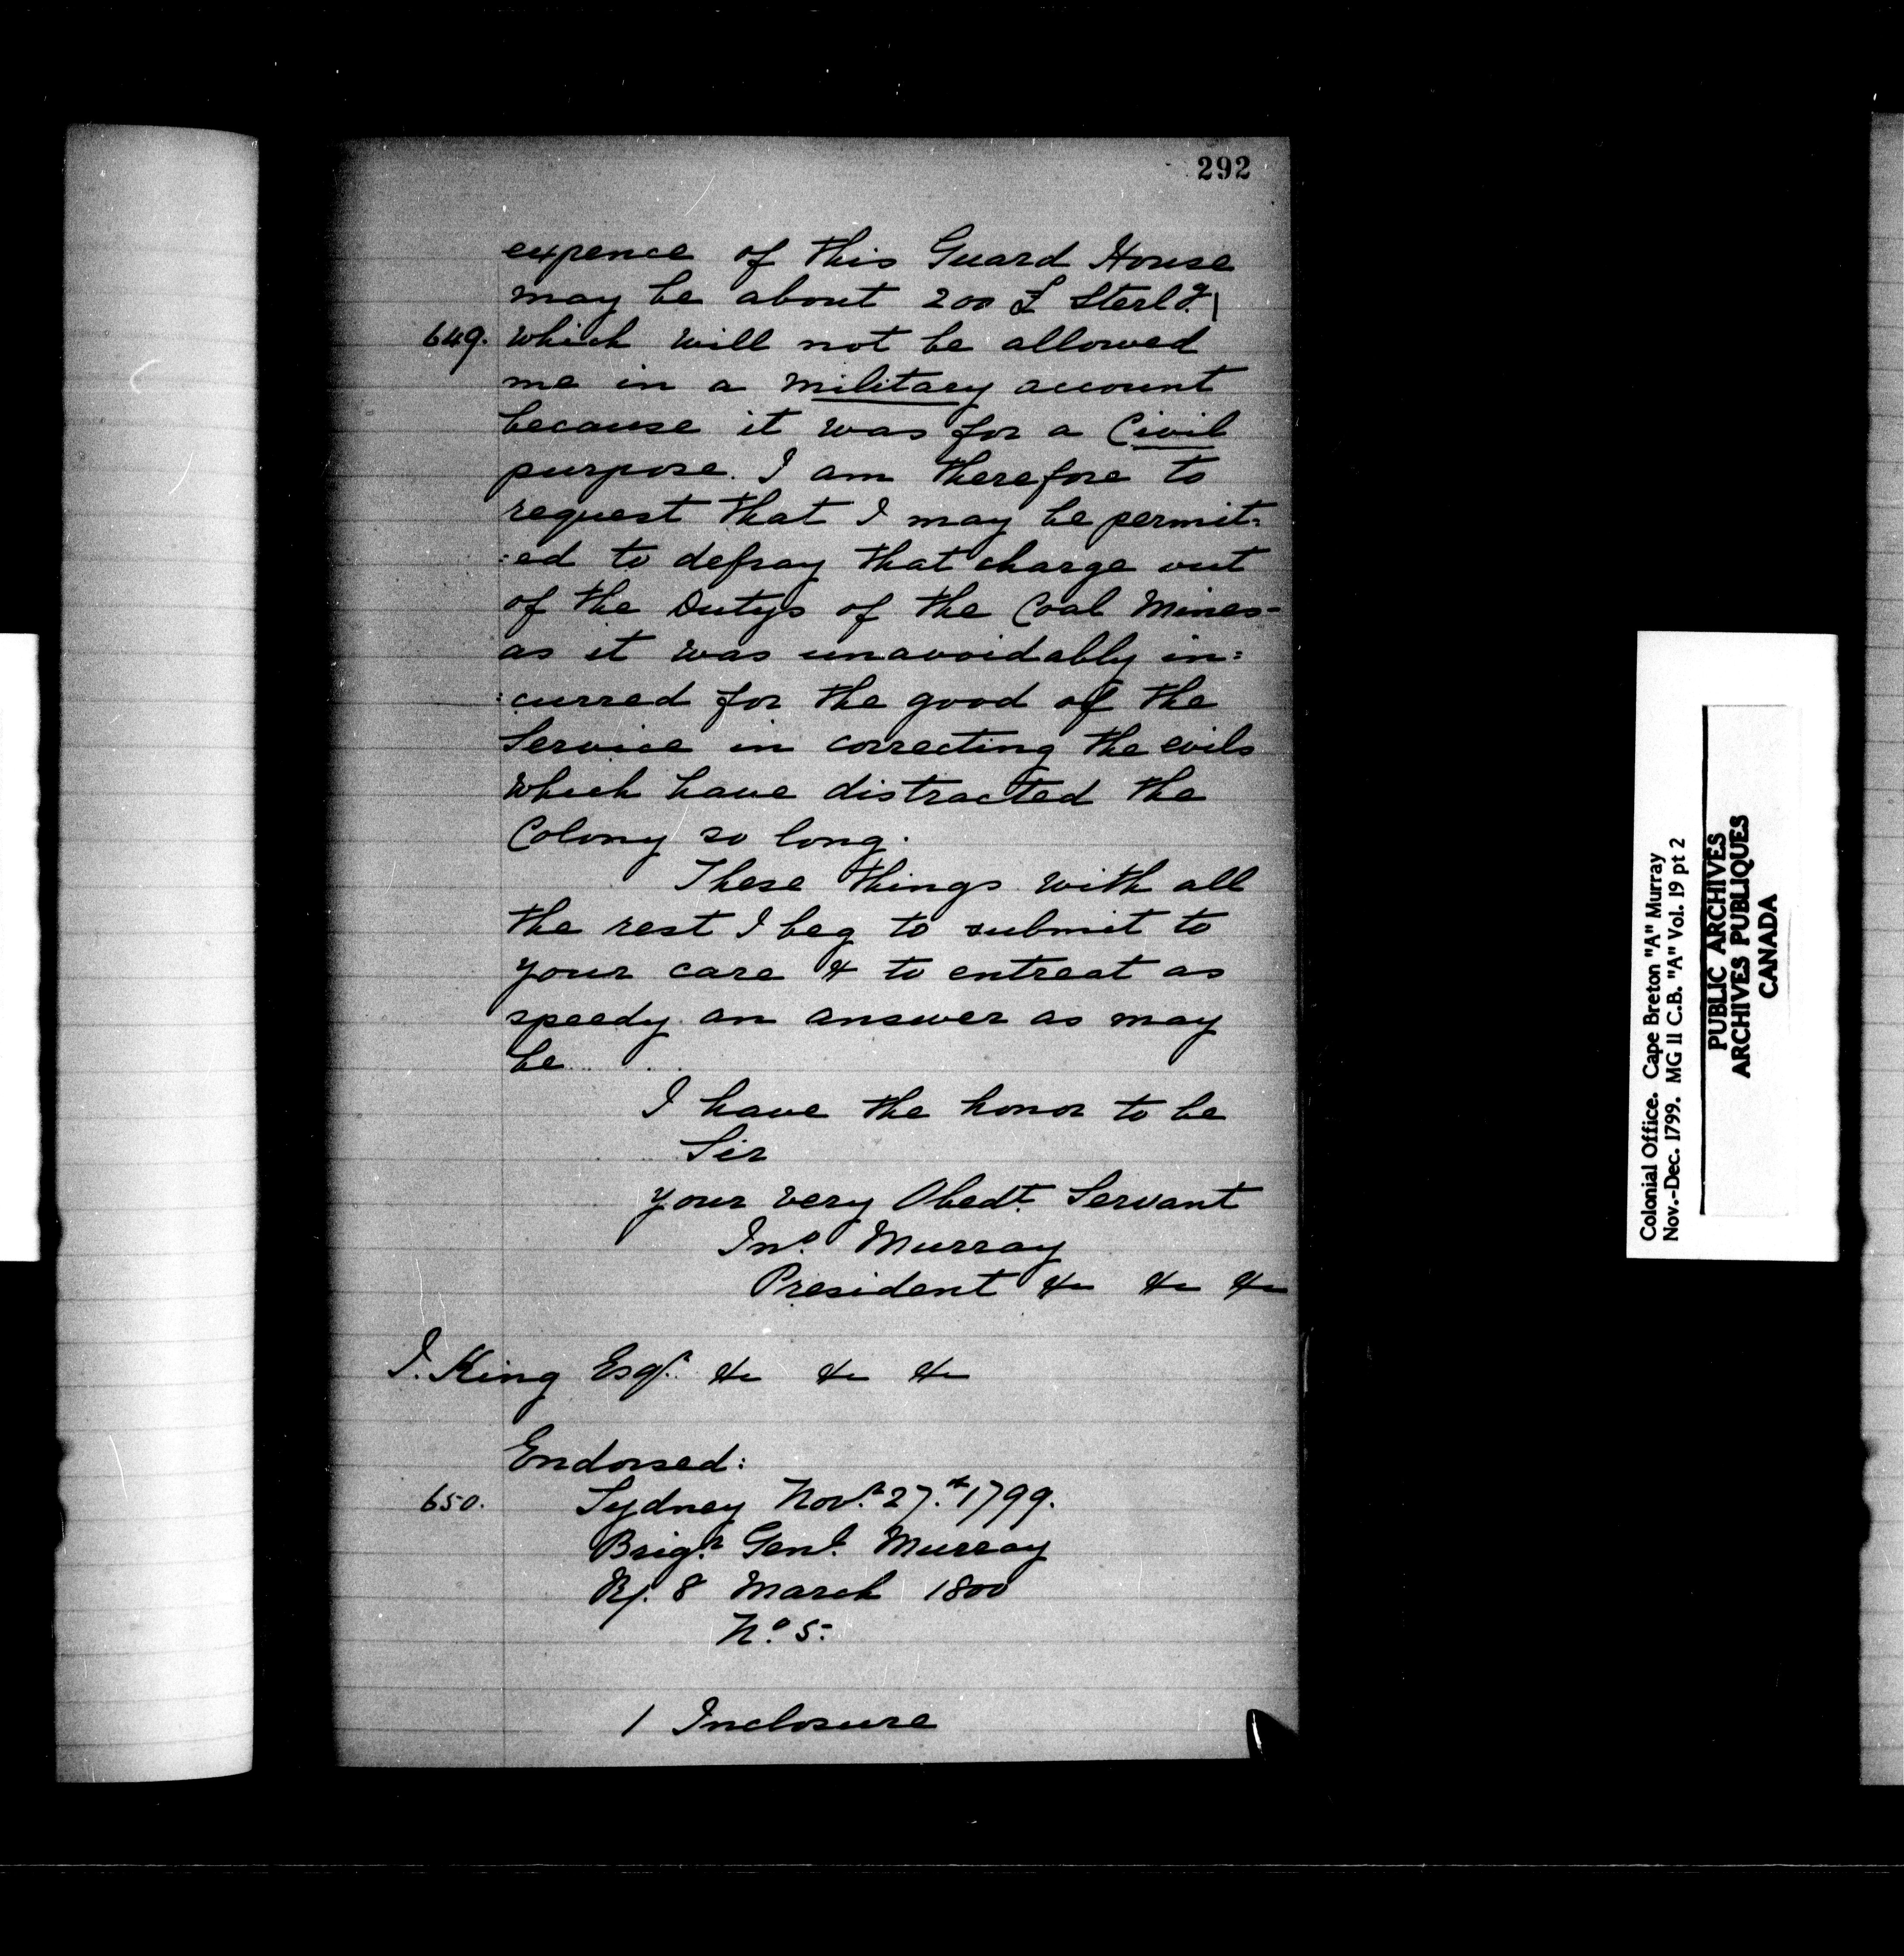 292
expence of this Guard House
may be about 200 £ Sterlg.|
649. which will not be allowed
me in a military account
because it was for a Civil
purpose. I am therefore to
request that I may be permit=
:ed to defray that charge out
of the Dutys of the Coal Mines-
as it was unavoidably in:
:curred for the good of the
Service in correcting the evils
which have distracted the
Colony so long.
These things with all
the rest I beg to submit to
your care & to entreat as
speedy an answer as may
be
I have the honor to be
Sir
your very Obedt. Servant
Jno. Murray
President &c &c &c
J. King Esqr. &c &c &c
Endorsed:
650. Sydney Novr. 27.th 1799.
Brigr. Genl. Murray
R/. 8 March 1800
No. 5.
1 Inclosure
Colonial Office. Cape Breton "A" Murray
Nov.-Dec. 1799. MG 11 C.B. "A" Vol. 19 pt 2
PUBLIC ARCHIVES
ARCHIVES PUBLIQUES
CANADA